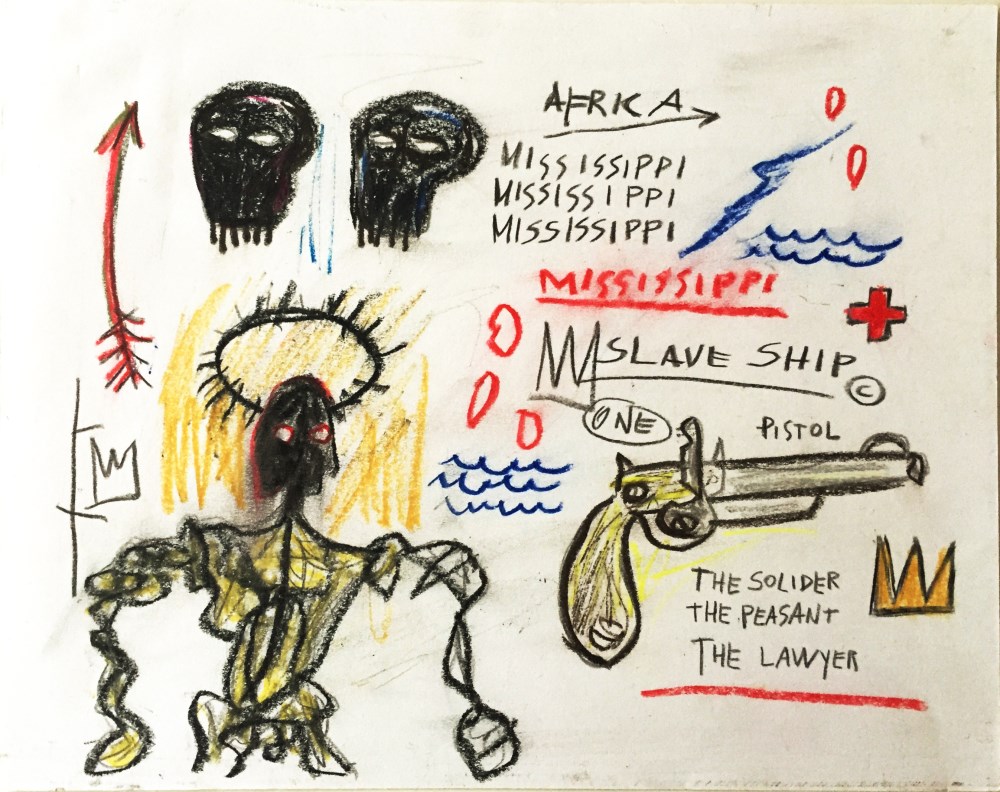 AFRICA
MISSISSIPPI
MISSISSIPPI
MISSISSIPPI
MISSISSIPPI
SLAVE SHIP ©
ONE
PISTOL
THE SOLIDER
THE PEASANT
THE LAWYER